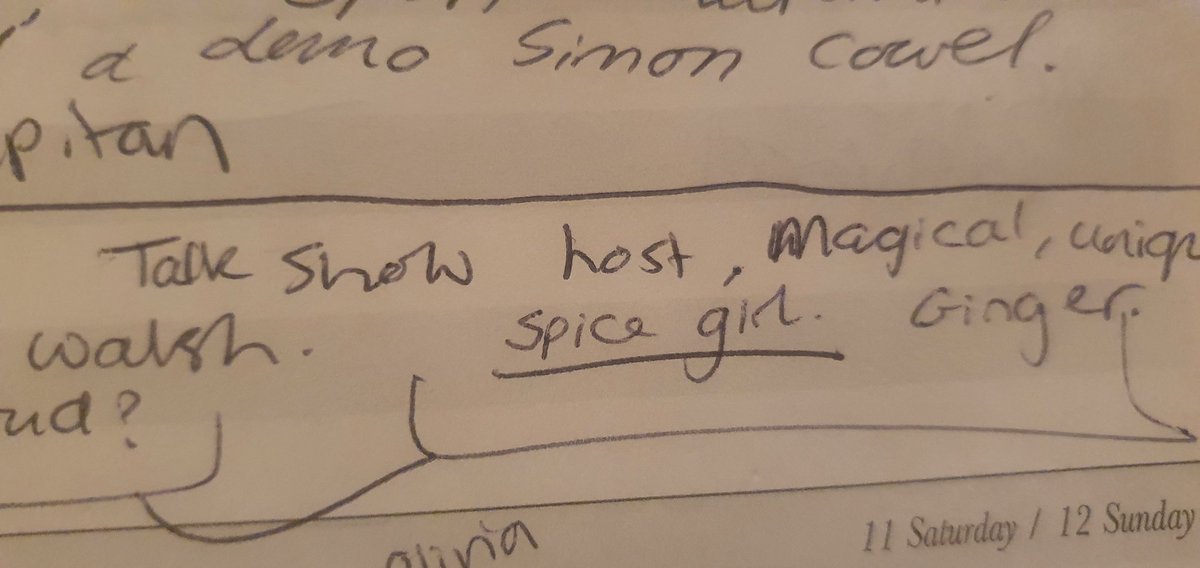 a demo Simon Cowel.
pitan
Talk Show host, Magical, uniq
walsh. Spice girl. Ginger.
ud?
11 Saturday / 12 Sunday
olivia